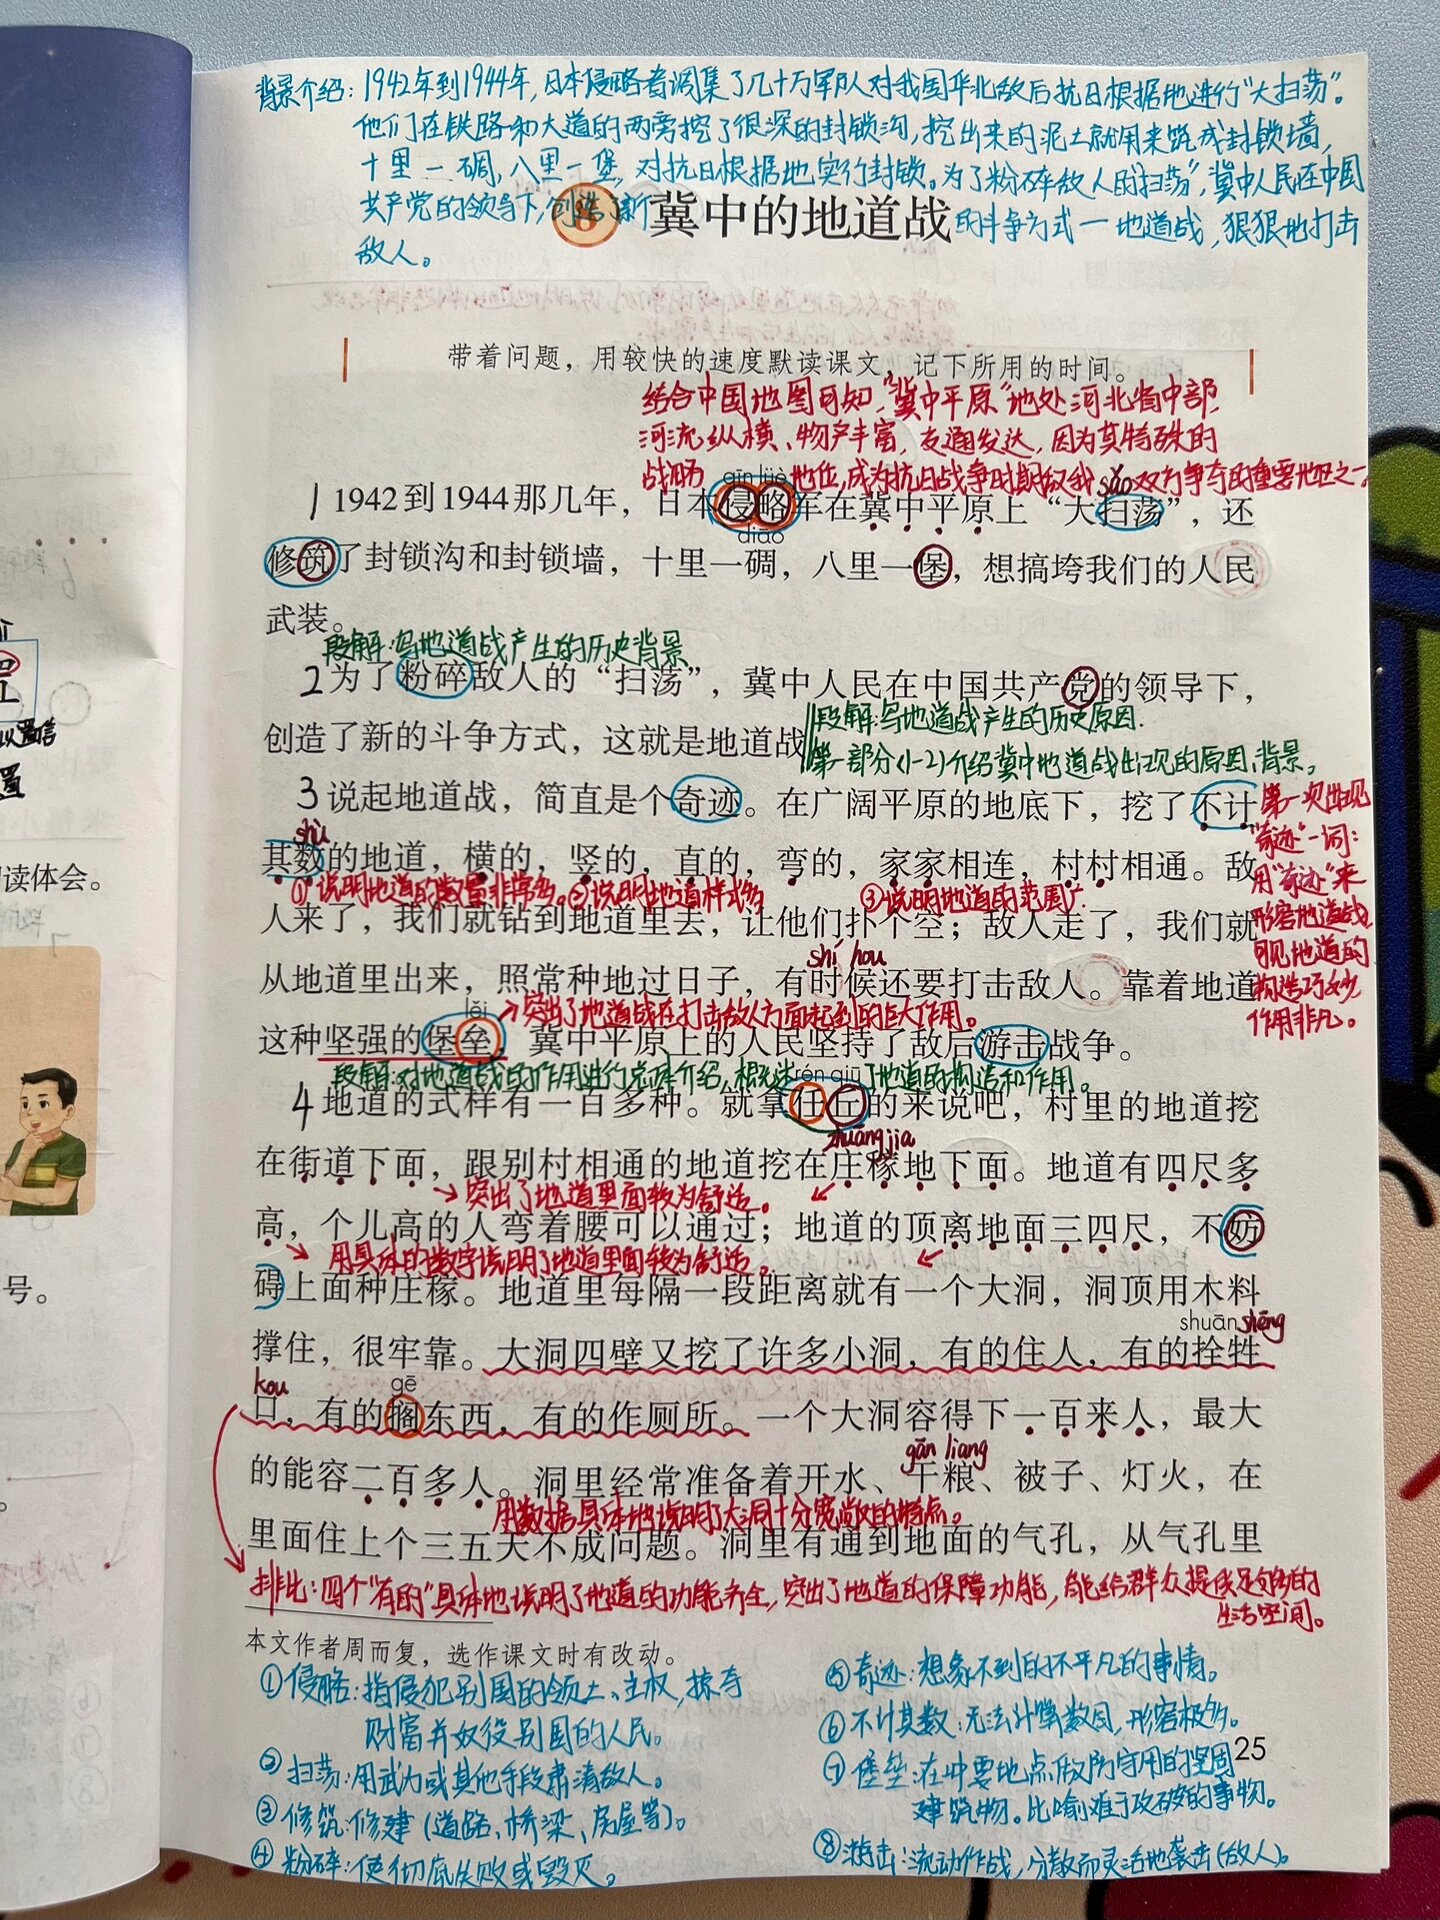 背景介绍：1942年到1944年，日本侵略者调集了几十万军队对我国华北敌后抗日根据地进行“大扫荡”。
他们在铁路和大道的两旁挖了很深的封锁沟，挖出来的泥土就用来筑成封锁墙，
十里一碉，八里一堡，对抗日根据地实行封锁。为了粉碎敌人的“扫荡”，冀中人民在中国
共产党的领导下，创造了新的斗争方式一地道战，狠狠地打击
敌人。
8 冀中的地道战
带着问题，用较快的速度默读课文，记下所用的时间。
结合中国地图可知，“冀中平原”地处河北省中部，
河流纵横、物产丰富，交通发达，因为其特殊的
战略地位，成为抗日战争时期敌我双方争夺的重要地区之一。
qīn lüè
sǎo
1 1942到1944那几年，日本侵略军在冀中平原上“大扫荡”，还
diāo
修筑了封锁沟和封锁墙，十里一碉，八里一堡，想搞垮我们的人民
武装。
段解：写地道战产生的历史背景
2 为了粉碎敌人的“扫荡”，冀中人民在中国共产党的领导下，
段解：写地道战产生的历史原因.
创造了新的斗争方式，这就是地道战
第一部分(1-2)介绍冀中地道战出现的原因、背景。
3 说起地道战，简直是个奇迹。在广阔平原的地底下，挖了不计
第一次出现
“奇迹”一词：
用“奇迹”来
形容地道战，
可见地道的
构造巧妙，
作用非凡。
shù
其数的地道，横的，竖的，直的，弯的，家家相连，村村相通。敌
①说明地道的数量非常多。②说明地道样式多 ③说明地道的范围广.
人来了，我们就钻到地道里去，让他们扑个空；敌人走了，我们就
shí hou
从地道里出来，照常种地过日子，有时候还要打击敌人。靠着地道
lěi
突出了地道战在打击敌人方面起到的巨大作用。
这种坚强的堡垒，冀中平原上的人民坚持了敌后游击战争。
段解：对地道战的作用进行总体介绍，概述了地道的构造和作用。
rén qiū
4 地道的式样有一百多种。就拿任丘的来说吧，村里的地道挖
zhuāng jia
在街道下面，跟别村相通的地道挖在庄稼地下面。地道有四尺多
突出了地道里面较为舒适。
高，个儿高的人弯着腰可以通过；地道的顶离地面三四尺，不妨
用具体的数字说明了地道里面较为舒适。
碍上面种庄稼。地道里每隔一段距离就有一个大洞，洞顶用木料
shuān shēng
撑住，很牢靠。大洞四壁又挖了许多小洞，有的住人，有的拴牲
kou
gē
口，有的搁东西，有的作厕所。一个大洞容得下一百来人，最大
gān liang
的能容二百多人。洞里经常准备着开水、干粮、被子、灯火，在
用数据具体地说明了大洞十分宽敞的特点。
里面住上个三五天不成问题。洞里有通到地面的气孔，从气孔里
排比：四个“有的”具体地说明了地道的功能齐全，突出了地道的保障功能，能给群众提供足够的
生活空间。
本文作者周而复，选作课文时有改动。
①侵略：指侵犯别国的领土、主权，掠夺
财富并奴役别国的人民。
②扫荡：用武力或其他手段肃清敌人。
③修筑：修建（道路、桥梁、房屋等）。
④粉碎：使彻底失败或毁灭。
⑤奇迹：想象不到的不平凡的事情。
⑥不计其数：无法计算数目，形容极多。
⑦堡垒：在冲要地点做防守用的坚固
建筑物。比喻难于攻破的事物。
⑧游击：流动作战，分散而灵活地袭击(敌人)。
25
读体会。
号。
置